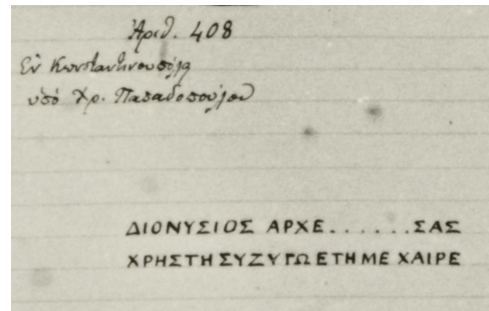 Ἀριθ. 408
Ἐν Κωνσταντινουπόλῃ
ὑπὸ Χρ. Παπαδοπούλου
ΔΙΟΝΥΣΙΟΣ ΑΡΧΕ.......ΣΑΣ
ΧΡΗΣΤΗ ΣΥΖΥΓΩ ΕΤΗ ΜΕ ΧΑΙΡΕ